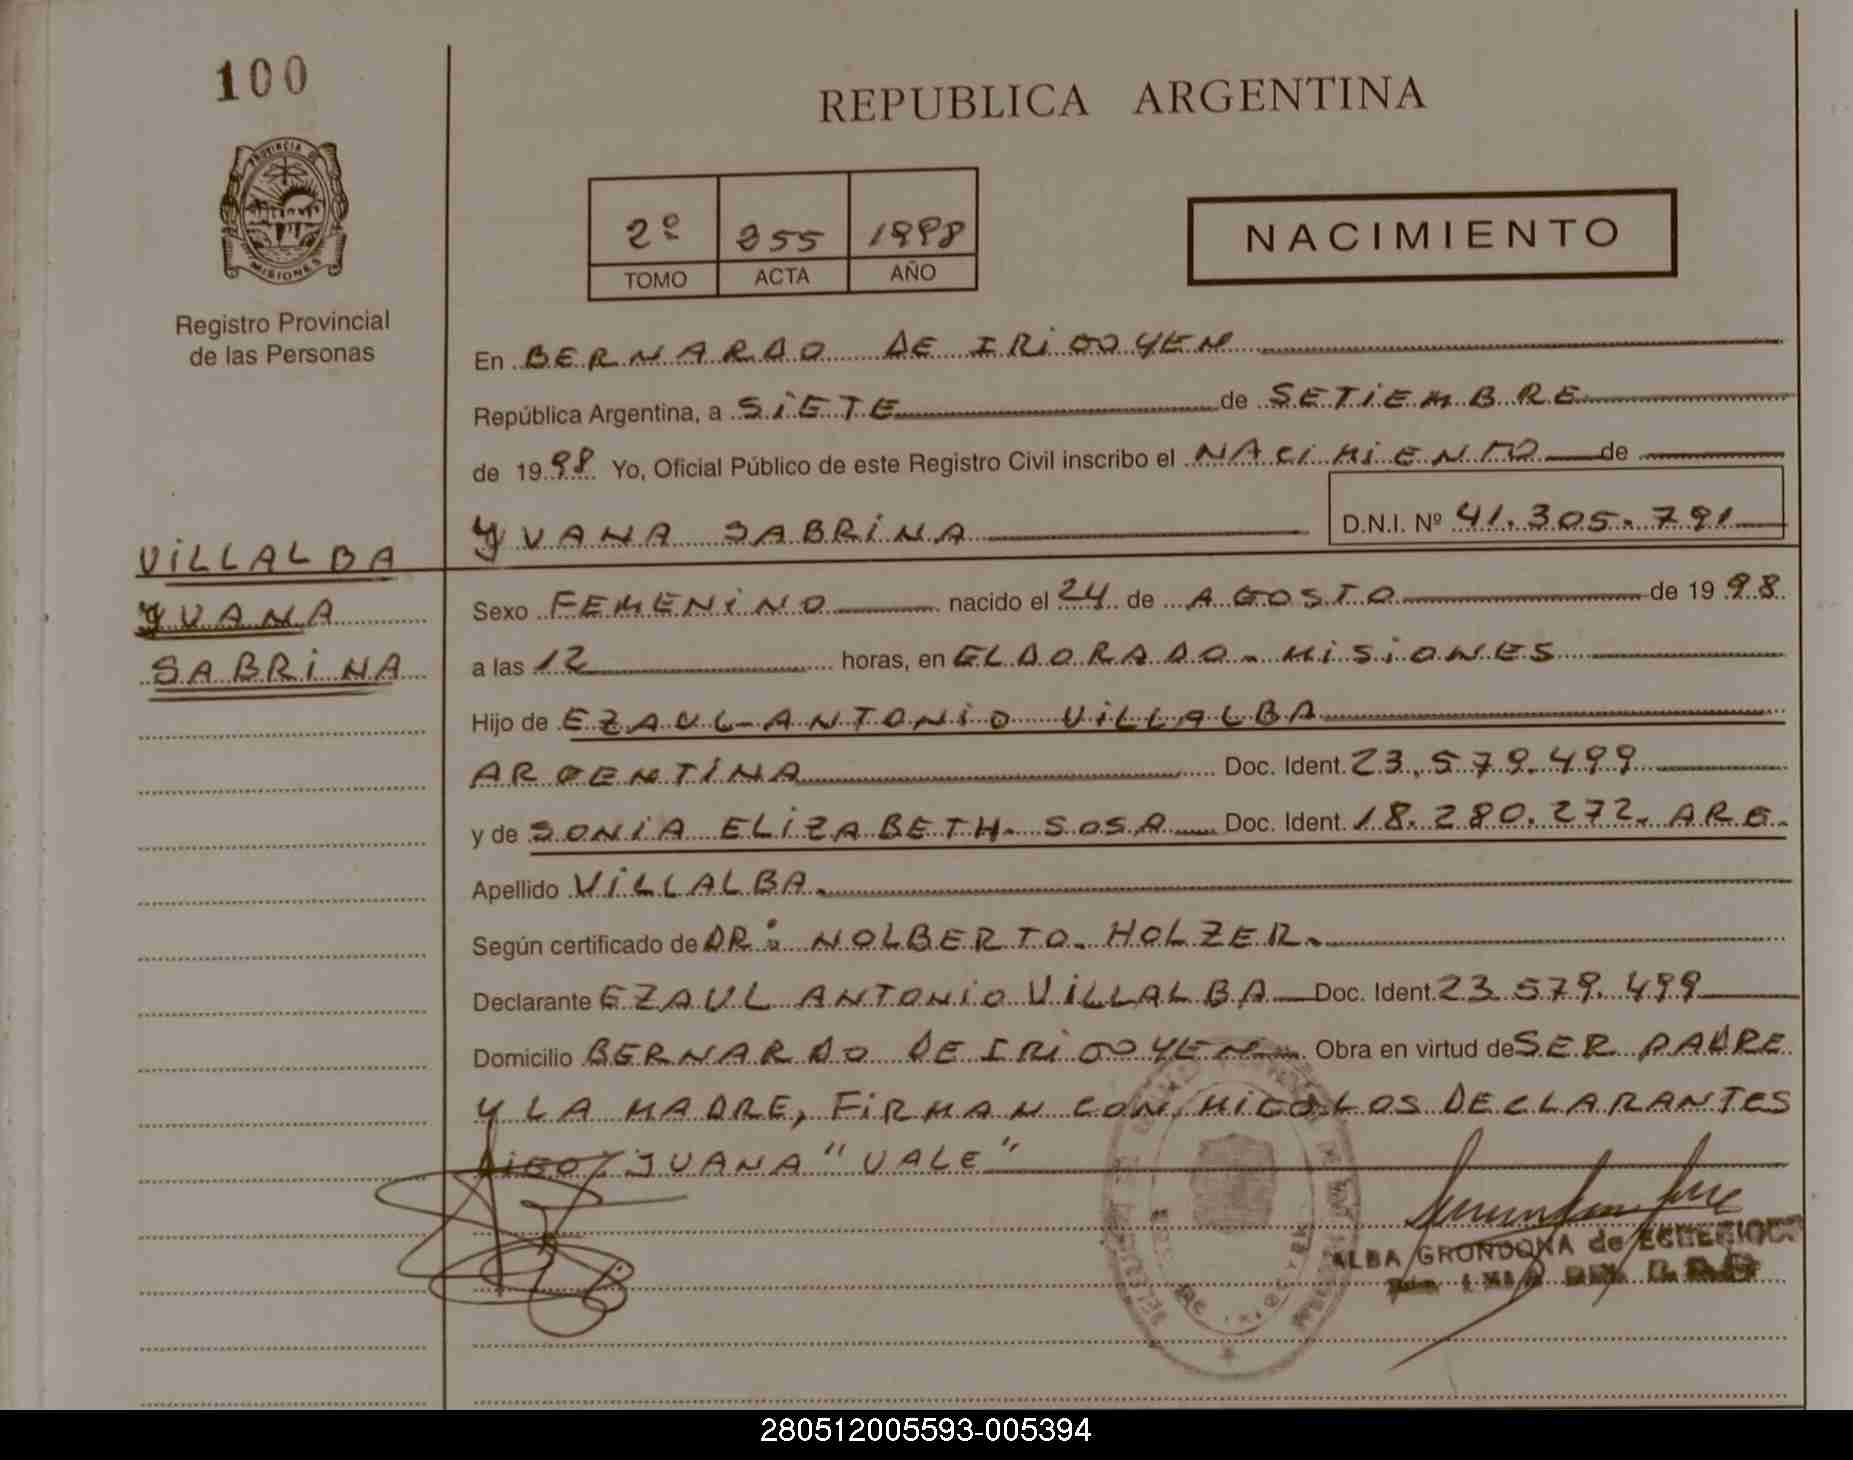 100
REPUBLICA ARGENTINA
PROVINCIA DE
MISIONES
Registro Provincial
de las Personas
2º 355 1998
TOMO ACTA AÑO
NACIMIENTO
En BERNARDO DE IRIGOYEN
República Argentina, a SiETE de SETiEMBRE
de 1998 Yo, Oficial Público de este Registro Civil inscribo el NACiMiENTO de
YUANA SABRiNA D.N.I. Nº 41.305.791
VILLALBA
YUANA
SABRiNA
Sexo FEMENiNO nacido el 24 de AGOSTO de 1998
a las 12 horas, en ELDORADO - MiSiONES
Hijo de EZAUL ANTONiO ViLLALBA
ARGENTiNA Doc. Ident. 23.579.499
y de SONiA ELiZABETH SOSA Doc. Ident. 18.280.272. ARG.
Apellido ViLLALBA.
Según certificado de DR: NOLBERTO HOLZER.
Declarante EZAUL ANTONiO ViLLALBA Doc. Ident. 23.579.499
Domicilio BERNARDO DE IRiGOYEN Obra en virtud de SER PADRE
Y LA MADRE, FiRMAN CONMIGO LOS DECLARANTES
DiGO/JUANA "VALE"
ALBA GRONDONA de
280512005593-005394